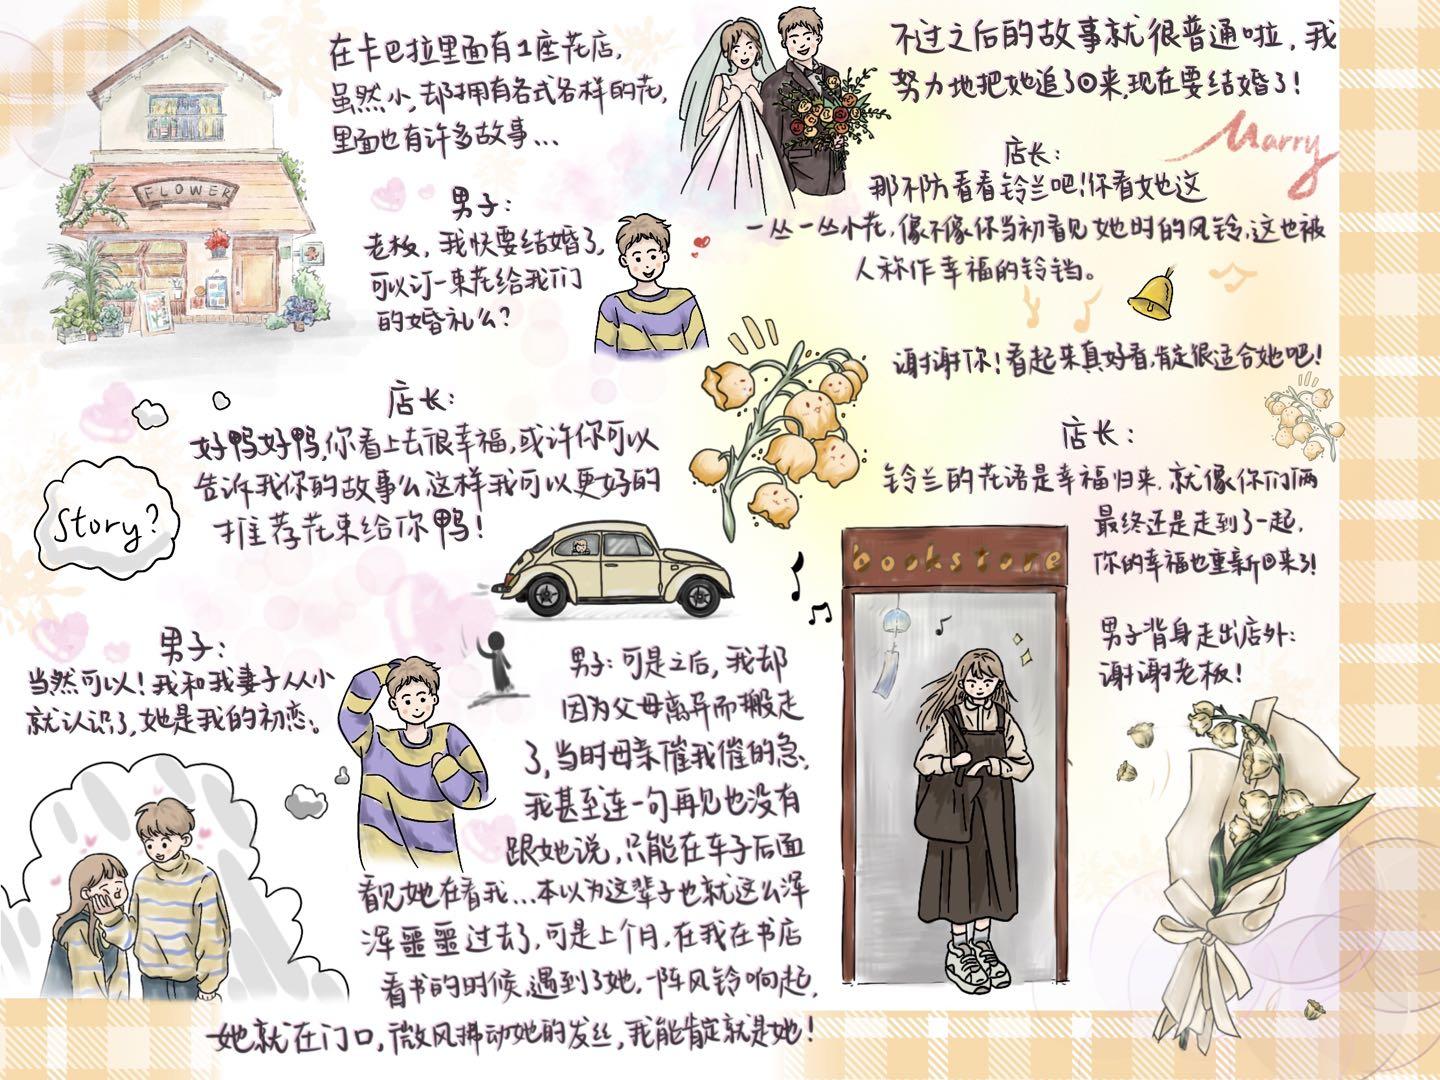 在卡巴拉里面有1座花店,
虽然小,却拥有各式各样的花,
里面也有许多故事...
FLOWER
男子:
老板,我快要结婚了,
可以订一束花给我们
的婚礼么?
店长:
好鸭好鸭,你看上去很幸福,或许你可以
告诉我你的故事么,这样我可以更好的
推荐花束给你鸭!
Story?
男子:
当然可以!我和我妻子从小
就认识了,她是我的初恋。
男子:可是之后,我却
因为父母离异而搬走
了,当时母亲催我催的急,
我甚至连一句再见也没有
跟她说,只能在车子后面
看见她在看我...本以为这辈子也就这么浑
浑噩噩过去了,可是上个月,在我在书店
看书的时候,遇到了她,一阵风铃响起,
她就在门口,微风拂动她的发丝,我能肯定就是她!
不过之后的故事就很普通啦,我
努力地把她追了回来,现在要结婚了!
Marry
店长:
那不防看看铃兰吧!你看她这
一丛一丛小花,像不像你当初看见她时的风铃,这也被
人称作幸福的铃铛。
谢谢你!看起来真好看,肯定很适合她吧!
店长:
铃兰的花语是幸福归来,就像你们俩
最终还是走到了一起,
你的幸福也重新回来了!
bookstore
男子背身走出店外:
谢谢老板!